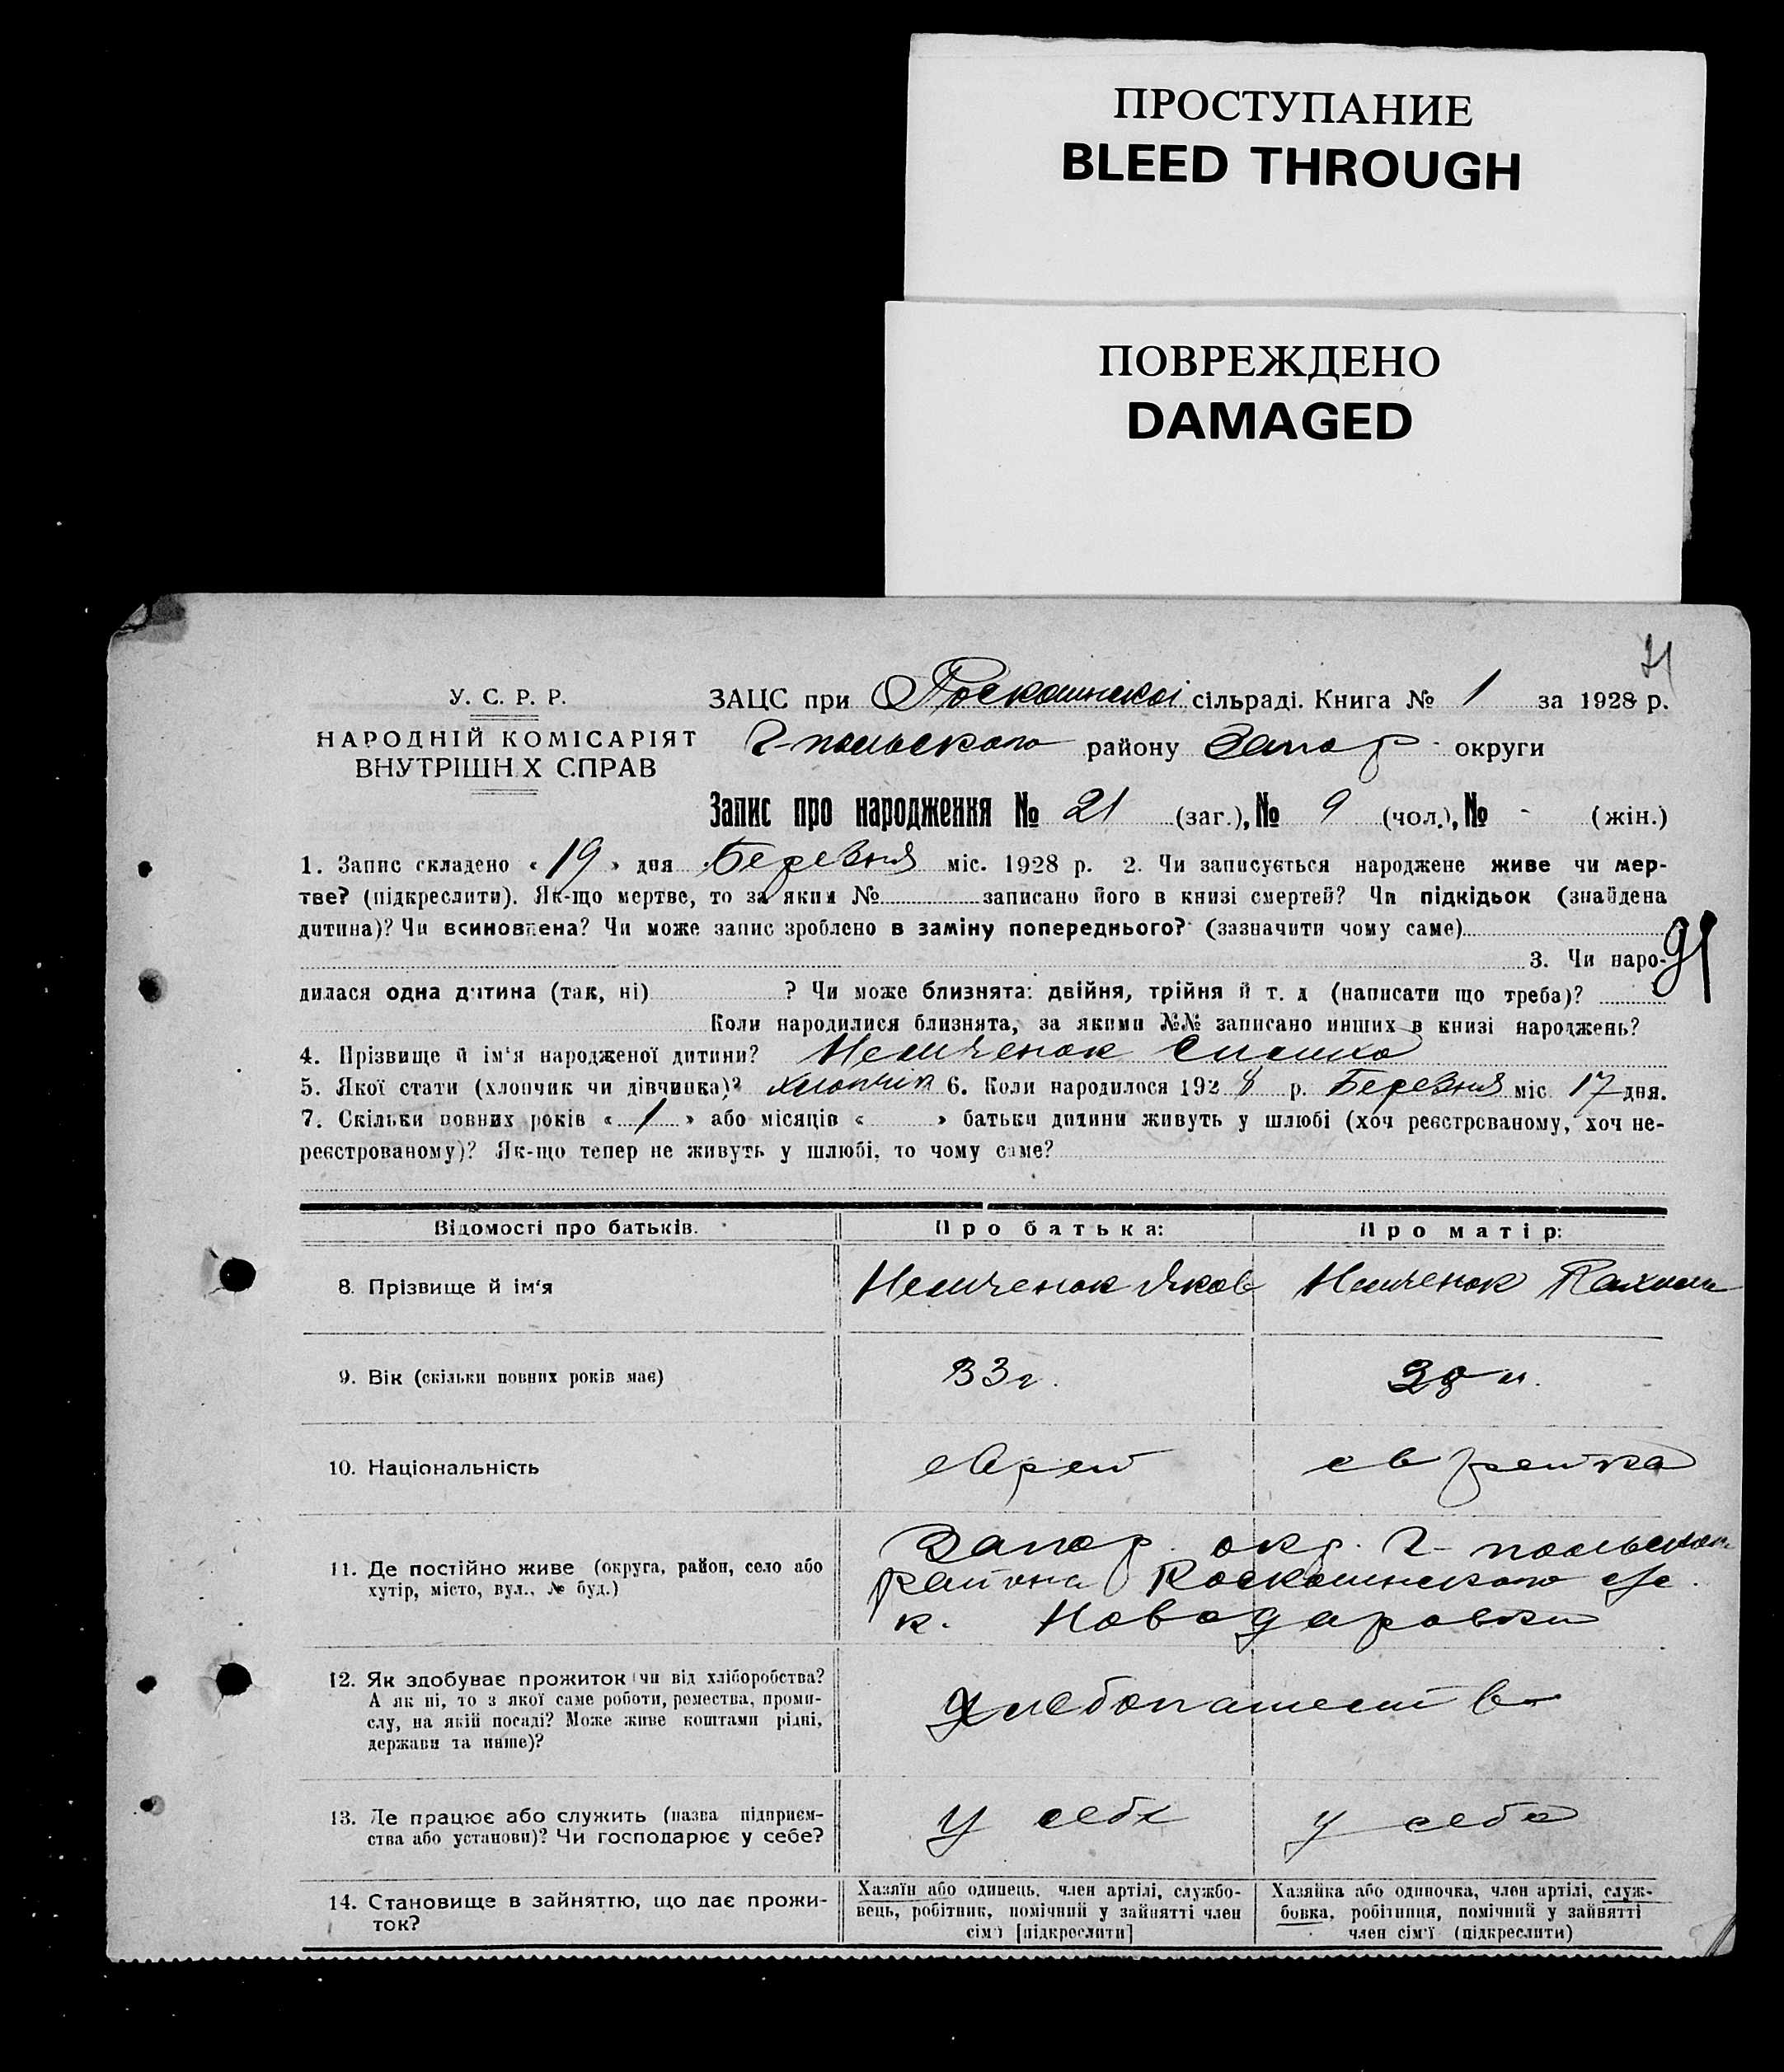 ПРОСТУПАНИЕ
BLEED THROUGH
ПОВРЕЖДЕНО
DAMAGED
У. С. Р. Р.
НАРОДНІЙ КОМІСАРІЯТ
ВНУТРІШН Х СПРАВ
ЗАЦС при Роскошнскоі сільраді. Книга № 1 за 1928 р.
Г-польского району Запор. округи
Запис про народження № 21 (заг.), № 9 (чол.), № - (жін.)
1. Запис складено « 19 » дня Березня міс. 1928 р. 2. Чи записується народжене живе чи мер-
тве? (підкреслити). Як-що мертве, то за яким № записано його в книзі смертей? Чи підкідьок (знайдена
дитина)? Чи всиновлена? Чи може запис зроблено в заміну попереднього? (зазначити чому саме)
3. Чи наро-
91
дилася одна дитина (так, ні) ? Чи може близнята: двійня, трійня й т. д (написати що треба)?
Коли народилися близнята, за якими №№ записано инших в книзі народжень?
4. Прізвище й ім'я народженої дитини? Немченок
5. Якої стати (хлопчик чи дівчинка)? хлопчик 6. Коли народилося 1928 р. Березня міс 17 дня.
7. Скільки повних років « 1 » або місяців « » батьки дитини живуть у шлюбі (хоч реєстрованому, хоч не-
реєстрованому)? Як-що тепер не живуть у шлюбі, то чому саме?
Відомості про батьків. Про батька: Про матір:
8. Прізвище й ім'я Немченок Яков Немченок
9. Вік (скільки повних років має) 33 г.
10. Національність еврей еврейка
11. Де постійно живе (округа, район, село або
хутір, місто, вул., № буд.)
Запор. окр. Г-польского
района Роскошнского с/с.
к. Новодаровки
12. Як здобуває прожиток (чи від хліборобства?
А як ні, то з якої саме роботи, ремества, проми-
слу, на якій посаді? Може живе коштами рідні,
держави та инше)?
хлебопашеств
13. Де працює або служить (назва підприєм-
ства або установи)? Чи господарює у себе?
у себе у себе
14. Становище в зайняттю, що дає прожи-
ток?
Хазяїн або одинець, член артілі, службо-
вець, робітник, помічний у зайнятті член
сім'ї [підкреслити]
Хазяйка або одиночка, член артілі, служ-
бовка, робітниця, помічний у зайнятті
член сім'ї (підкреслити)